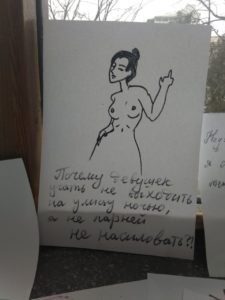 Почему девушек
учать не выхочить
на улицу ночью,
а не парней
не насиловать?!
я с